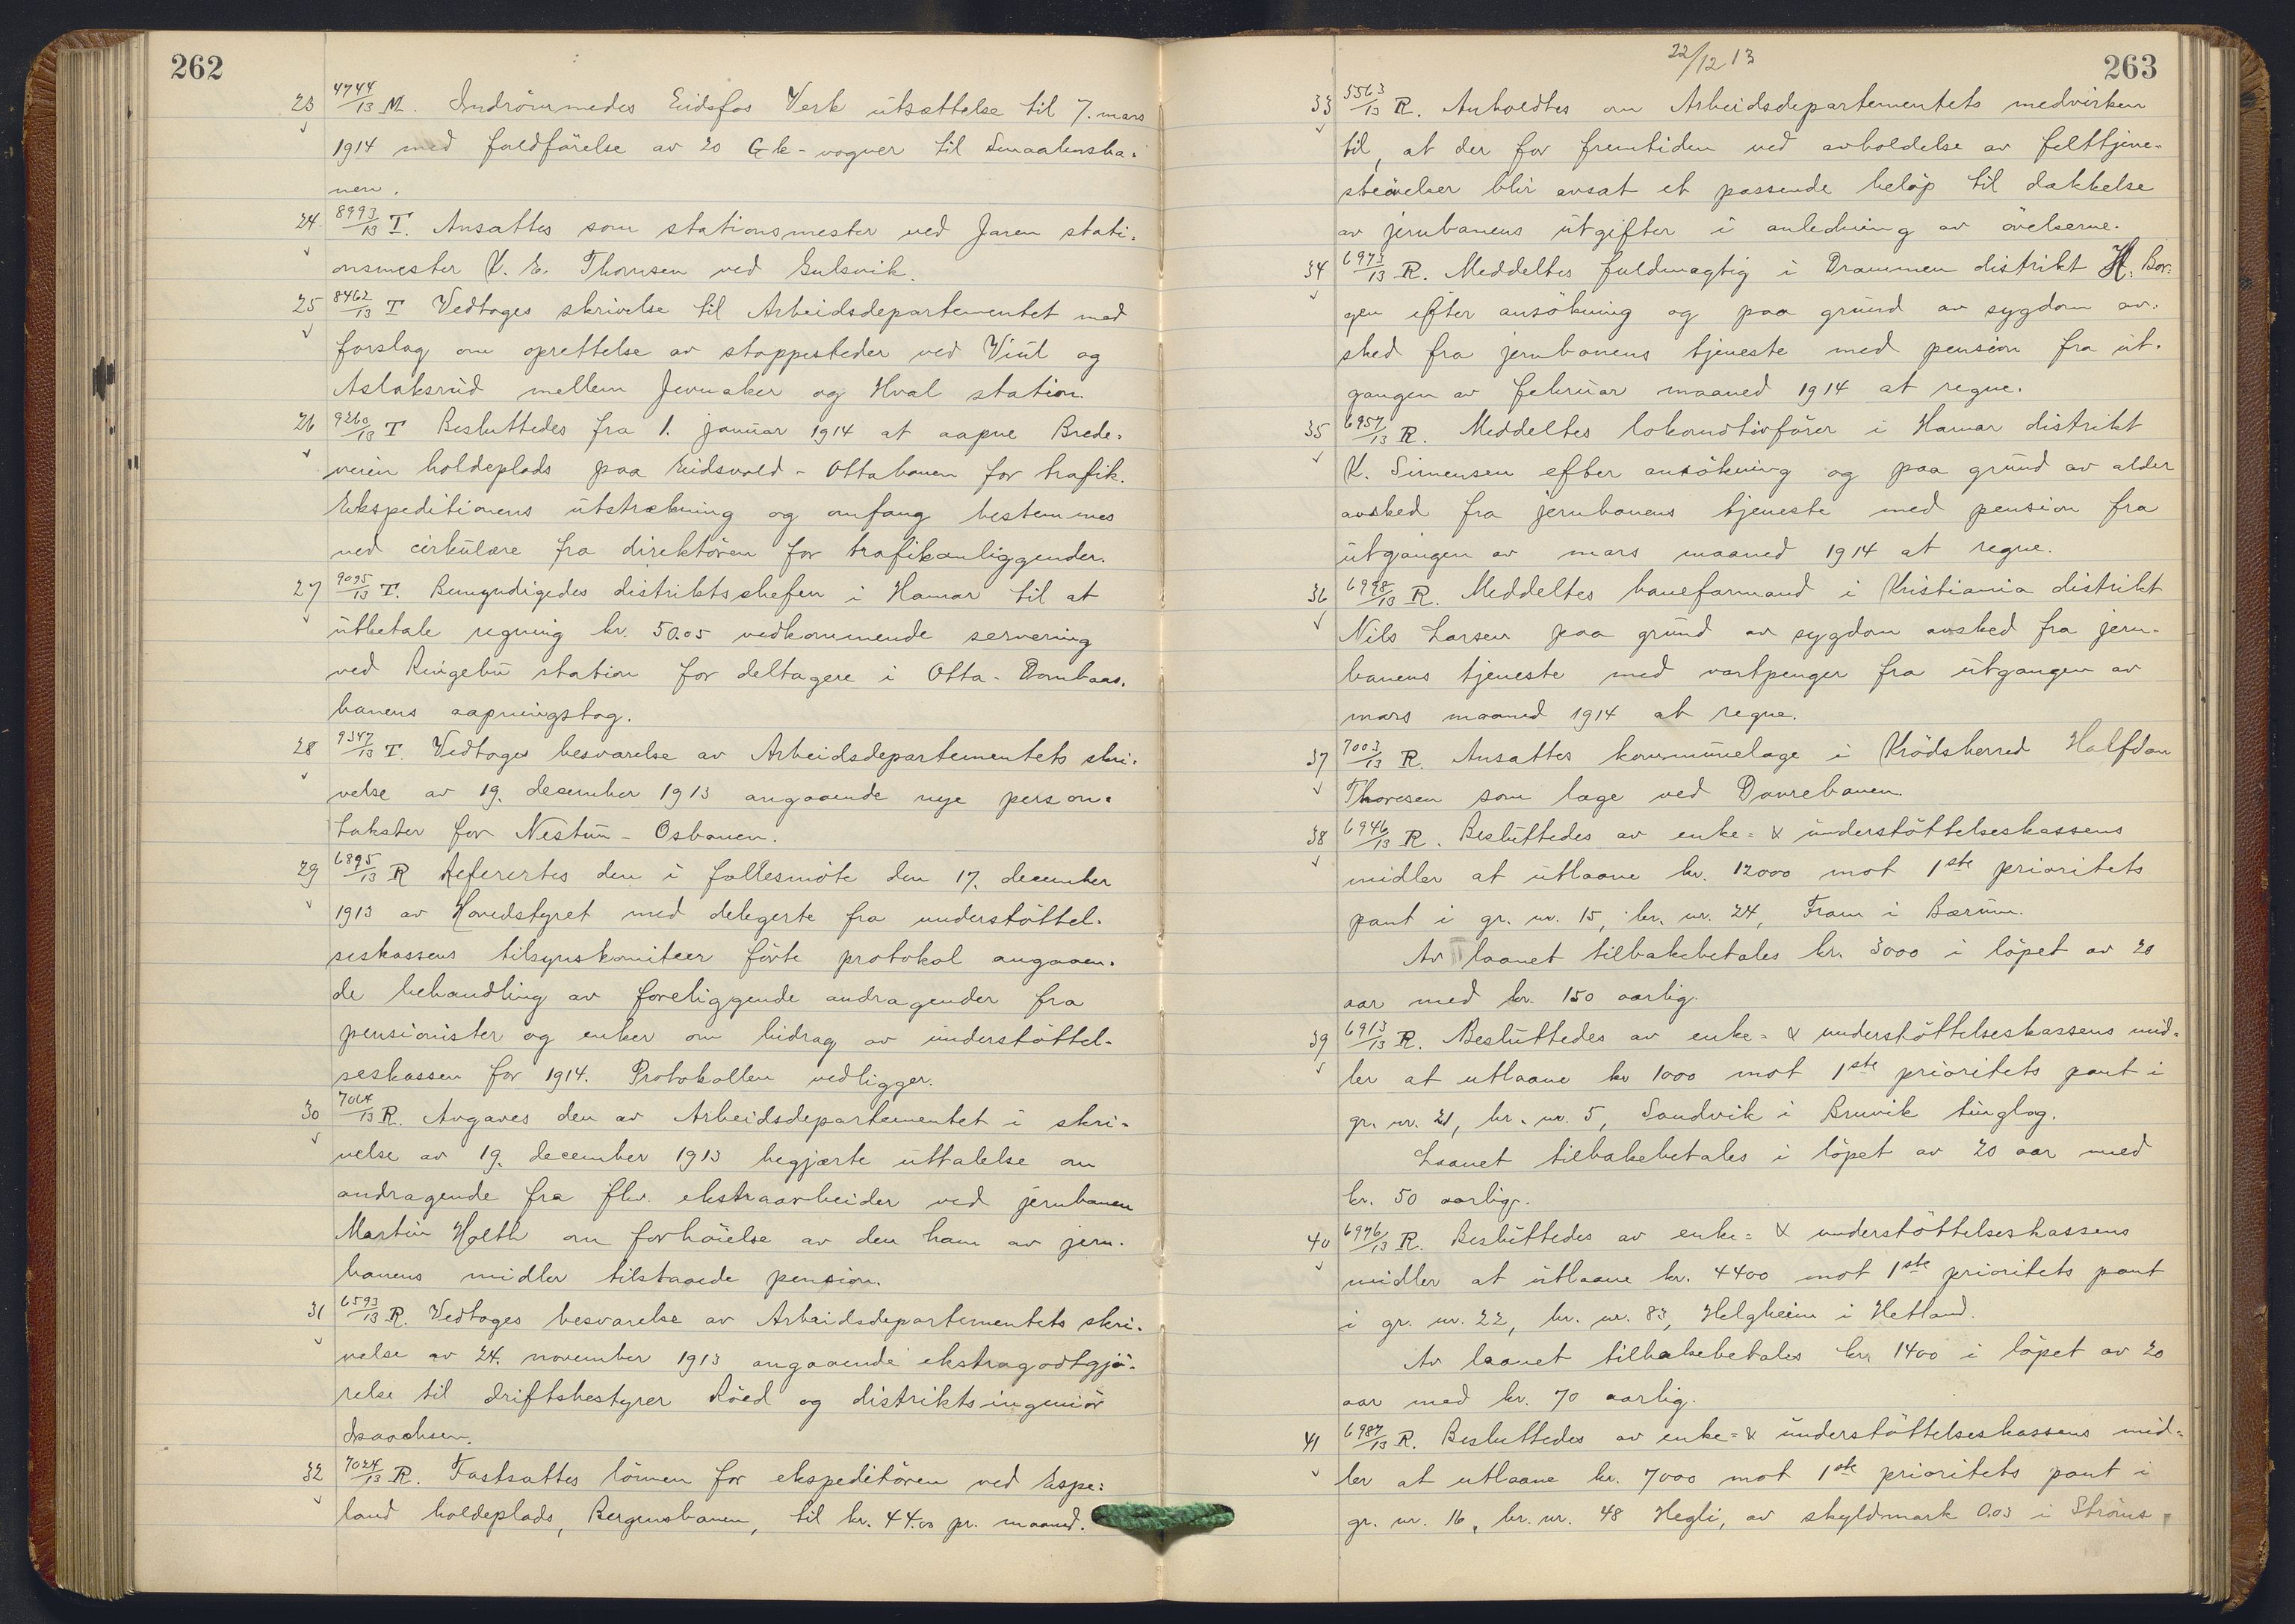 262
23 4744/13 M. Indrömmedes Eidsfos Verk utsættelse til 7. mars
1914 med fuldförelse av 20 Gk-vogner til Smaalensba-
nen.
24 8993/13 T. Ansattes som stationsmester ved Jaren stati-
onsmester K. E. Thomsen ved Gulsvik.
25 8462/13 T Vedtoges skrivelse til Arbeidsdepartementet med
forslag om oprettelse av stoppesteder ved Viul og
Aslaksrud mellem Jevnaker og Hval station.
26 9260/13 T Besluttedes fra 1. januar 1914 at aapne Brede-
veien holdeplads paa Eidsvold - Ottabanen for trafik.
Ekspeditionens utstrækning og omfang bestemmes
ved cirkulære fra direktören for trafikanliggender.
27 9095/13 T. Bemyndigedes distriktschefen i Hamar til at
utbetale regning kr. 50.05 vedkommende servering
ved Ringebu station for deltagere i Otta - Dombaas-
banens aapningstog.
28 9347/13 T. Vedtoges besvarelse av Arbeidsdepartementets skri-
velse av 19. desember 1913 angaaende nye person-
takster for Nestun - Osbanen.
29 6895/13 R Referertes den i fællesmöte den 17. december
1913 av Hovedstyret med delegerte fra understöttel-
seskassens tilsynskomiteer förte protokol angaaen-
de behandling av foreliggende andragender fra
pensionister og enker om bidrag av understöttel-
seskassen for 1914. Protokollen vedligger.
30 7064/13 R. Avgaves den av Arbeidsdepartementet i skri-
velse av 19. december 1913 begjærte uttalelse om
andragende fra fhv. ekstraarbeider ved jernbanen
Martin Holth om forhöielse av den ham av jern-
banens midler tilstaaede pension.
31 6593/13 R. Vedtoges besvarelse av Arbeidsdepartementets skri-
velse av 24. november 1913 angaaende ekstragodtgjö-
relse til driftsbestyrer Röed og distriktsingeniör
Isaachsen.
32 7024/13 R. Fastsattes lönnen for ekspeditören ved Espe-
land holdeplads, Bergensbanen, til kr. 44.00 pr. maaned.
22/12 13
263
33 5563/13 R. Anholdtes om Arbeidsdepartementets medvirken
til, at der for fremtiden ved avholdelse av felttjene-
steövelser blir avsat et passende belöp til dækkelse
av jernbanens utgifter i anledning av övelserne.
34 6973/13 R. Meddeltes fuldmægtig i Drammen distrikt H. Bor-
gen efter ansökning og paa grund av sygdom av-
sked fra jernbanens tjeneste med pension fra ut-
gangen av februar maaned 1914 at regne.
35 6957/13 R. Meddeltes lokomotivförer i Hamar distrikt
K. Simensen efter ansökning og paa grund av alder
avsked fra jernbanens tjeneste med pension fra
utgangen av mars maaned 1914 at regne.
36 6998/13 R. Meddeltes baneformand i Kristiania distrikt
Nils Larsen paa grund av sygdom avsked fra jern-
banens tjeneste med vartpenger fra utgangen av
mars maaned 1914 at regne.
37 7003/13 R. Ansattes kommunelæge i Krödsherred Halfdan
Thoresen som læge ved Dovrebanen.
38 6946/13 R. Besluttedes av enke- & understöttelseskassens
midler at utlaane kr. 12000 mot 1ste prioritets
pant i gr. nr. 15, br. nr. 24, Fram i Bærum.
Av laanet tilbakebetales kr. 3000 i löpet av 20
aar med kr. 150 aarlig.
39 6913/13 R. Besluttedes av enke- & understöttelseskassens mid-
ler at utlaane kr 1000 mot 1ste prioritets pant i
gr. nr. 21, br. nr. 5, Sandvik i Bruvik tinglag.
Laanet tilbakebetales i löpet av 20 aar med
kr. 50 aarlig.
40 6976/13 R. Besluttedes av enke- & understöttelseskassens
midler at utlaane kr. 4400 mot 1ste prioritets pant
i gr. nr. 22, br. nr. 83, Helgheim i Hetland.
Av laanet tilbakebetales kr. 1400 i löpet av 20
aar med kr. 70 aarlig.
41 6987/13 R. Besluttedes av enke- & understöttelseskassens mid-
ler at utlaane kr. 7000 mot 1ste prioritets pant i
gr. nr. 16, br. nr. 48 Hegli, av skyldmark 0.03 i Ströms-